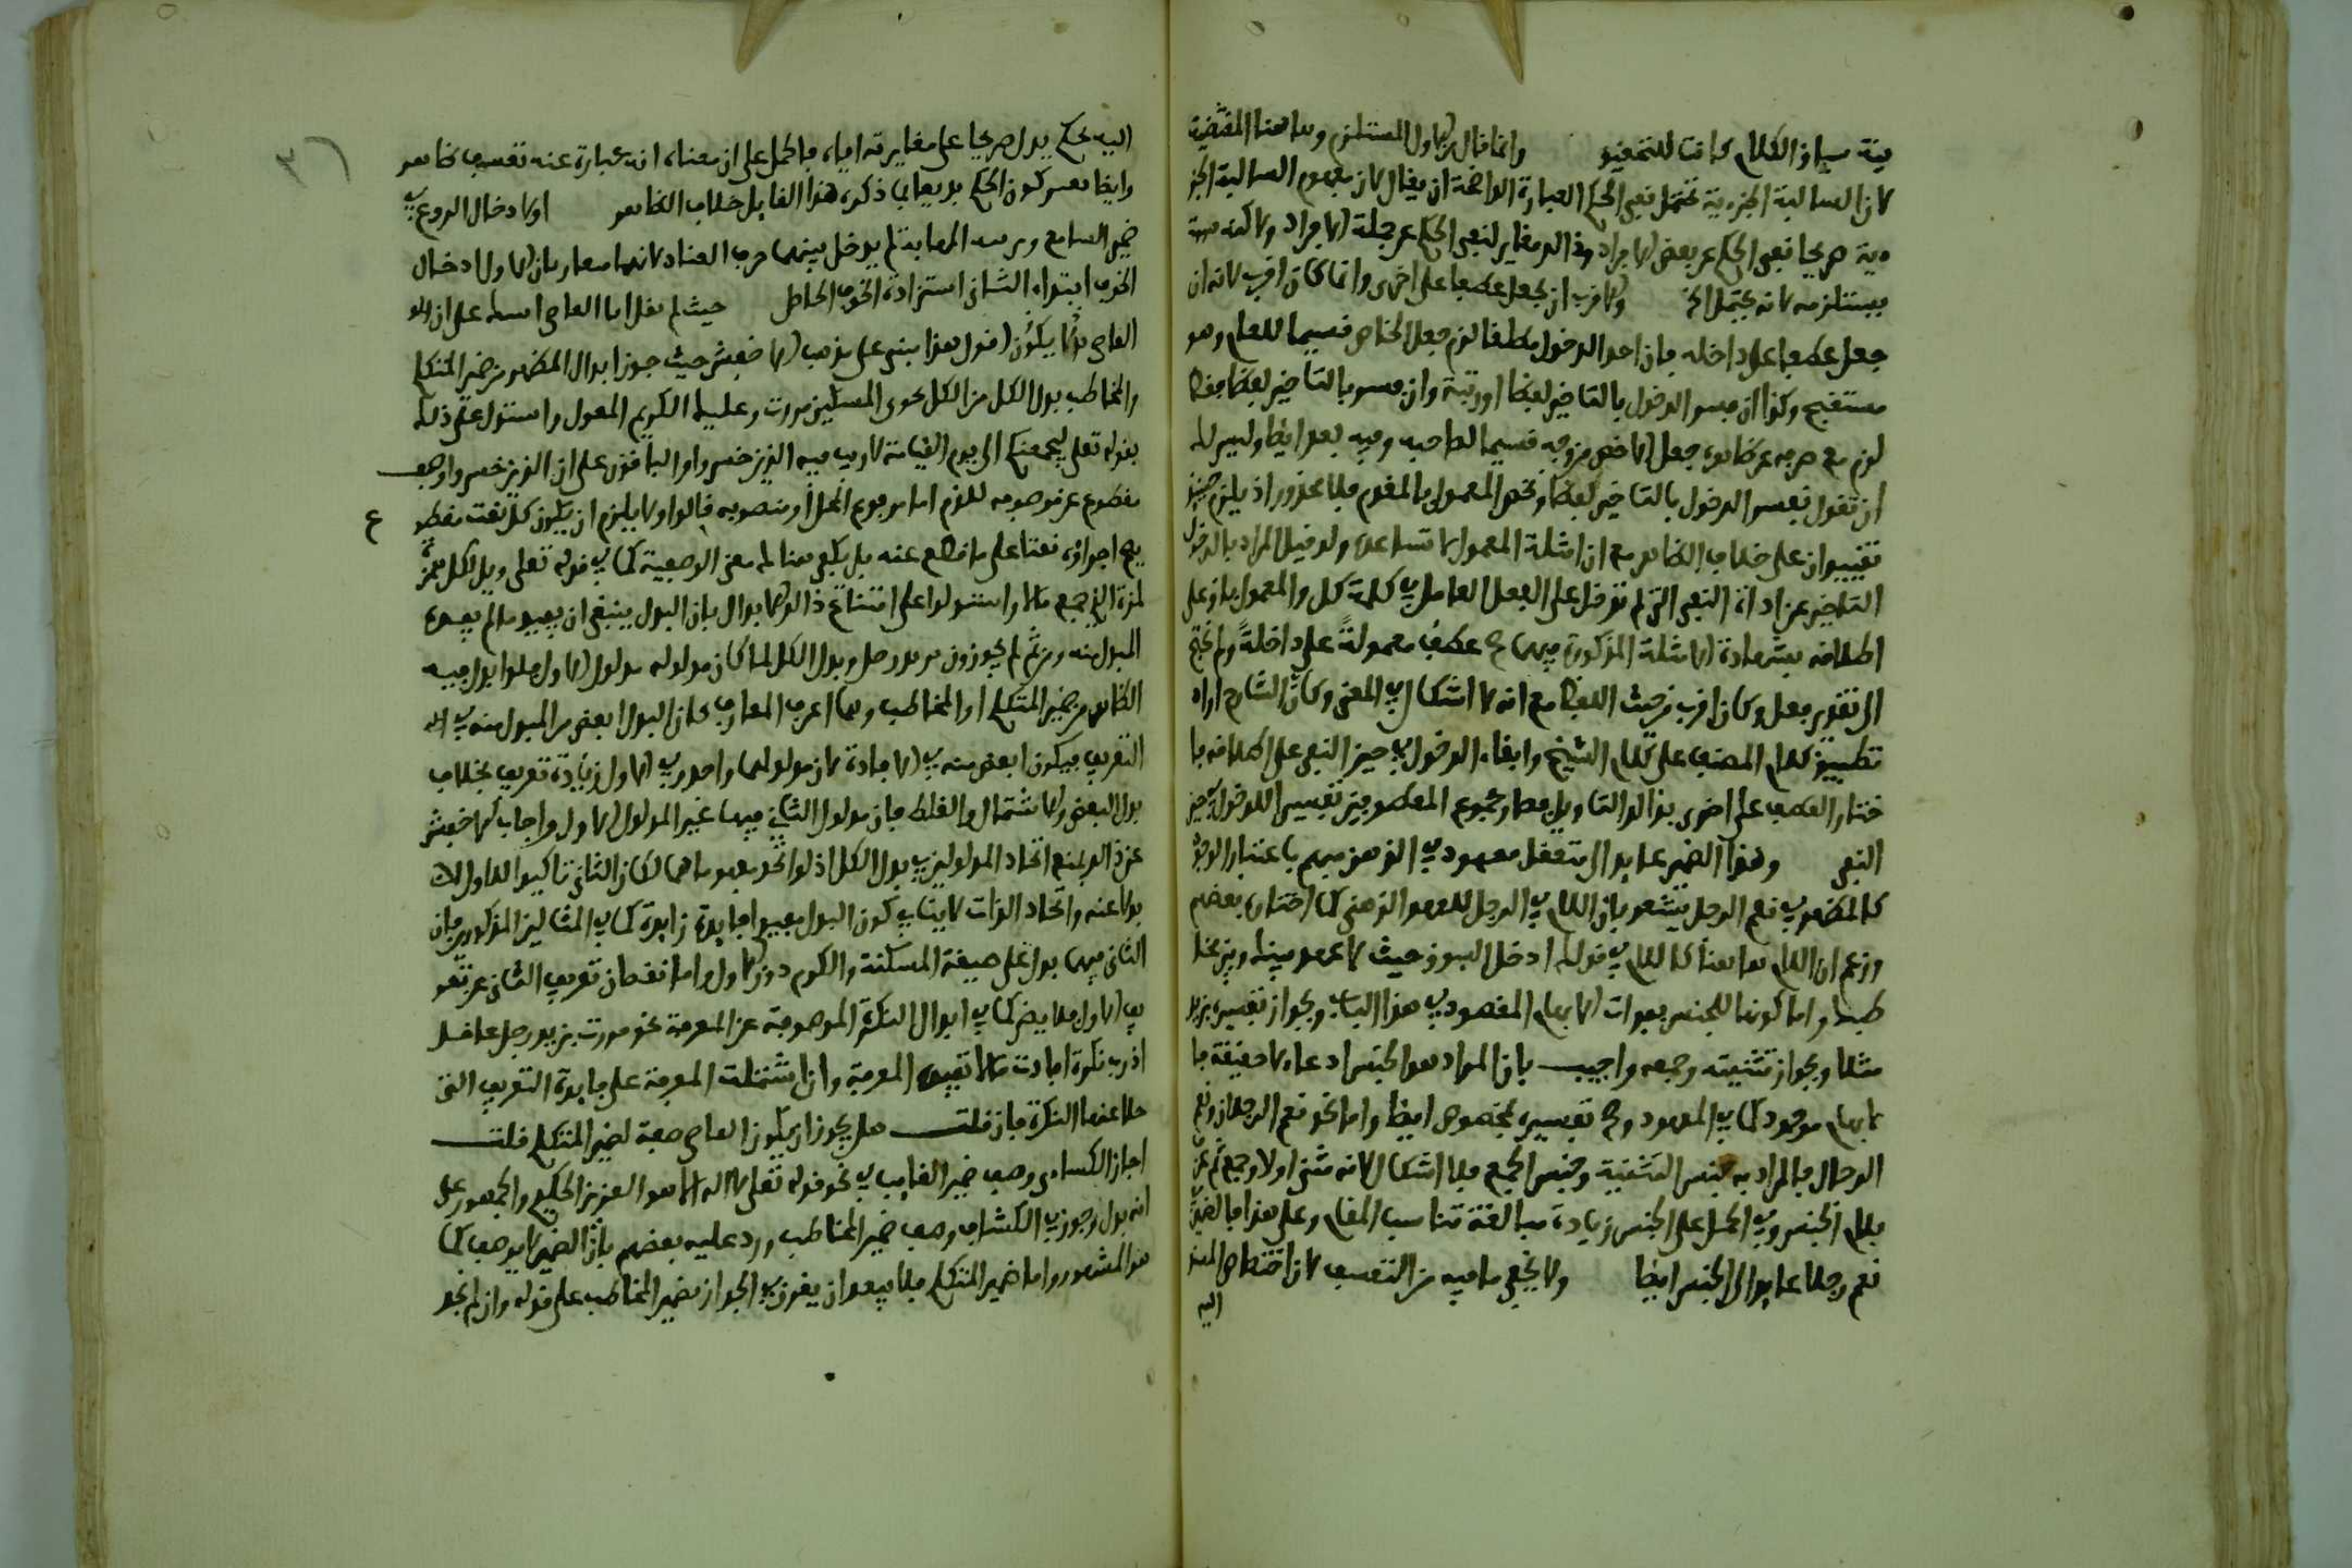 ينة سياق الكلام كانت للتحقيق وانما قال في الاول المستلزم وها هنا المقتضية
لان السالبة الجزءية تحتمل نفي الحكم العبارة الواضحة ان يقال لان مفهوم السالبة الجز
ءية صريحا نفي الحكم عن بعض الافراد وذلك مغاير لنفي الحكم عن جملة الافراد ولاكنه
يستلزمه لانه يحتمل الخ والاقرب ان يجعل عطفا على اخرى وانما كان اقرب لانه ان
جعل عطفا على داخله فان اخذ الدخول مطلقا لزم جعل الخاص قسيما للعام وهو
مستقبح وكذا ان فسر الدخول بالتاخير لفظا او رتبة وان فسر بالتاخير لفظا فقط
لزم مع صرفه عن ظاهره جعل الاخص من وجه قسيما لصاحبه وفيه بعد ايضا وليس لك
ان تقول نفسر الدخول بالتاخير لفظا ونخص المعمول بالمقدم فلا محذور اذ يلزم حينئذ
تقييدان على خلاف الظاهر مع ان امثلة المعمول لا تساعده ولو قيل المراد بالدخول
التاخير عن اداة النفي التي لم تدخل على الفعل العامل في كلمة كل والمعمول باق على
اطلاقه بشهادة الامثلة المذكورة فيهما صح عطف معمولة على داخلة ولم يحتج
الى تقدير فعل وكان اقرب من حيث اللفظ مع انه لا اشكال في المعنى وكان الشارح اراد
تطبيق كلام المصنف على كلام الشيخ وابقاء الدخول في حيز النفي على اطلاقه فا
ختار العطف على اخرى بذلك التاويل فصار مجموع المعطوفين تفسيرا للدخول في حيز
النفي وهذا الضمير عايد الى متعقل معهود في الذهن مبهم باعتبار الوجود
كالمظهر في نعم الرجل يشعر بان اللام في الرجل للعهد الذهني كما اختاره بعضهم
وزعم ان اللام ها هنا كاللام في قولك ادخل السوق حيث لا عهد بينك وبين مخا
طبك واما كونها للجنس بفوات الابهام المقصود في هذا الباب وبجواز تفسيره بزيد
مثلا وبجواز تثنيته وجمعه واجيب بان المراد هو الجنس ادعاء لا حقيقة فا
لابهام موجود كما في المعهود وصح تفسيره بمخصوص ايضا واما نحو نعم الرجلان ونعم
الرجال فالمراد به جنس التثنية وجنس الجمع فلا اشكال لانه مثنى اولا وجمع ثم عرف
بلام الجنس وفي الحمل على الجنس زيادة مبالغة تناسب المقام وعلى هذا فالضمير
نعم رجلا عايد الى الجنس ايضا ولا يخفى ما فيه من التعسف لان اقتضاء
اليه
اليه بحكم يدل صريحا على مغايرته اياه فالحمل على ان معناه انه عبارة عنه تعسف ظاهر
وايضا تفسير كون الحكم بديعا بما ذكره هذا القايل خلاف الظاهر او لادخال الروع في
ضمير السامع وتربية المهابة لم يدخل بينهما حرف العناد لانهما متقاربان الاول ادخال
الخوف ابتداء الثاني استزادة الخوف الحاصل حيث لم يقل انا العاصي اسيء على ان
العاصي بدلا يكون اقول هذا مبني على مذهب الاخفش حيث جوز ابدال المظهر من ضمير المتكلم
والمخاطب بدل الكل من الكل نحو بي المسكين مررت وعليك الكريم المعول واستدل على ذلك
بقوله تعلى ليجمعنكم الى يوم القيامة لا ريب فيه الذين خسروا والباقون على ان الذين خسروا وصف
مقطوع عن موصوفه للذم اما مرفوع المحل او منصوبه قالوا ولا يلزم ان يكون كل نعت مقطو ع
يصح اجراؤه نعتا على ما قطع عنه بل يكفي هنالك معنى الوصفية كما في قوله تعلى ويل لكل همزة
لمزة الذي جمع مالا واستدلوا على امتناع ذلك الابدال بان البدل ينبغي ان يفيد ما لم يفده
المبدل منه ومن ثم لم يجوزوا مر بزيد رجل وبدل الكل لما كان مدلوله مدلول الاول فلو ابدل فيه
الظاهر من ضمير المتكلم او المخاطب وهما اعرف المعارف كان البدل انقص من المبدل منه في
التعريف فيكون انقص منه في الافادة لان مدلولهما واحد وفي الاول زيادة تعريف بخلاف
بدل البعض والاشتمال والغلط فان مدلول الثاني فيها غير المدلول الاول واجاب الاخفش
عن ذلك بمنع اتحاد المدلولين في بدل الكل اذ لو اتحد مفهوماهما لكان الثاني تاكيدا للاول لا
بدلا عنه واتحاد الذات لا ينافي كون البدل مفيدا فايدة زايدة كما في المثالين المذكورين فان
الثاني فيهما يدل على صفة المسكنة والكرم دون الاول واما نقصان تعريف الثاني عن تعر
يف الاول فلا يضر كما في ابدال النكرة الموصوفة عن المعرفة نحو مررت بزيد رجل عاقل
اذ رب نكرة افادت ما لا تفيده المعرفة وان اشتملت المعرفة على فايدة التعريف التي
خلا عنها النكرة فان قلت هل يجوز ان يكون العاصي صفة لضمير المتكلم قلت
اجاز الكساءي وصف ضمير الغايب في نحو قوله تعلى لا اله الا هو العزيز الحكيم والجمهور على
انه بدل وجوز في الكشاف وصف ضمير المخاطب ورد عليه بعضهم بان الضمير لا يوصف كما
هو المشهور واما ضمير المتكلم فلا يبعد ان يقرن في الجواز بضمير المخاطب على قوله وان لم نجد
٣٦